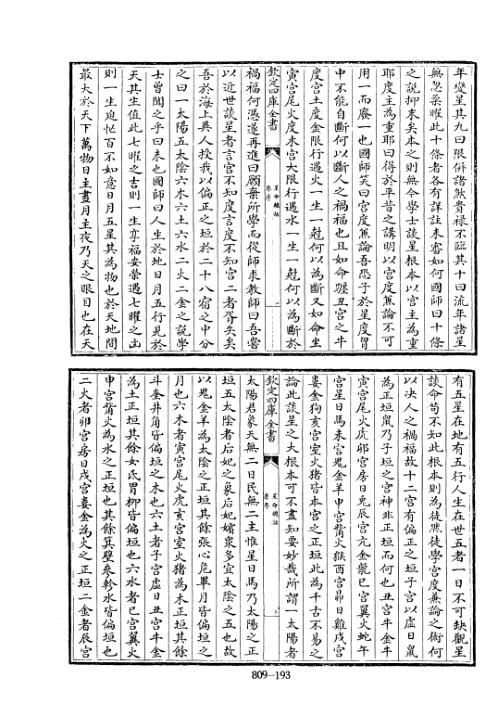 年變星其九曰限併諸煞貴祿不臨其十曰流年諸星
無忽羣曜此十條者各有詳註未審如何國師曰十條
之説抑末矣本之則無令學士談星根本以宮主為重
耶度主為重耶曰得於平昔之講明以宮度兼論不可
用一而廢一也國師笑曰宮度兼論吾恐子於星度胷
中不能自斷何以斷人之禍福也且如命躔丑宮之牛
度宮土度金限行遇火一生一尅何以為斷又如命坐
寅宮尾火度未宮大限行遇水一生一尅何以為斷於
欽定四庫全書
星命總括
禍福何憑遂再進曰願棄所學而從師求教師曰吾嘗
以近世談星者言宮不知度言度不知宮二者胥失矣
吾於海上異人授我以偏正之垣於二十八宿之中分
之曰一太陽五太陰六木六土六水二火二金之説學
士曾聞之乎曰未也國師曰人生於地日月五行見於
天其生值此七曜之吉則一生享福安榮遇七曜之凶
則一生迫忙百不如意日月五星其為物也於天地間
最大於天下萬物日主晝月主夜乃天之眼目也在天
有五星在地有五行人生在世五者一日不可缺觀星
談命苟不知此根本則為徒然徒學宮度兼論之術何
以決人之禍福故十二宮有偏正之垣子宮以虛日鼠
為正垣鼠乃子垣之宮神非正垣而何也丑宮牛金牛
寅宮尾火虎卯宮房日兎辰宮亢金龍巳宮翼火蛇午
宮星日馬未宮鬼金羊申宮觜火猴酉宮昴日雞戌宮
婁金狗亥宮室火猪皆本宮之正垣此為千古不易之
論此談星之大根本可不盡知要妙哉所謂一太陽者
欽定四庫全書
星命總括
太陽君象天無二日民無二主惟星日馬乃太陽之正
垣五太陰者后妃之象后妃嬪衆多宜太陰之五也故
以鬼金羊為太陰之正垣其餘張心危畢月皆偏垣之
月也六木者寅宮尾火虎亥宮室火猪為木正垣其餘
斗金井角皆偏垣之木也六土者子宮虛日丑宮牛金
為土正垣其餘女氐胃柳皆偏垣也六水者巳宮翼火
申宮觜火為水之正垣也其餘箕壁參軫水皆偏垣也
二火者卯宮房日戌宮婁金為火之正垣二金者辰宮
809-193